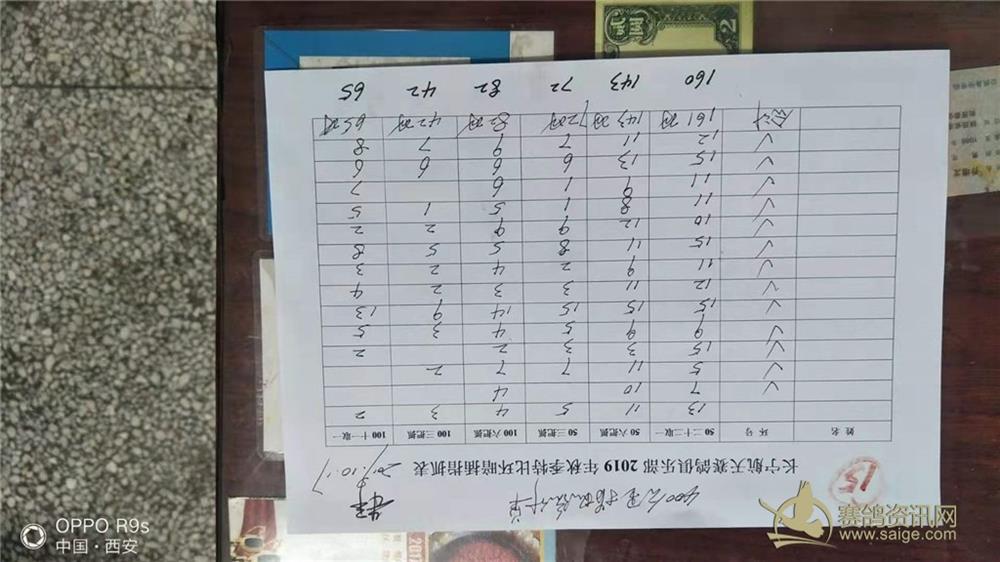 15
400公里指抓统计单
长宁航天赛鸽俱乐部 2019 年秋季特比环暗插指抓表
2019.10.17
姓 名 环 号 50 二十二取一 50 六把抓 50 三把抓 100 六把抓 100 三把抓 100 十一取一
13 11 5 4 3 2
√ 7 10 4
√ 5 11 7 7 2
√ 15 3 3 2 2
√ 9 9 5 4 3 5
√ 15 15 15 14 9 13
√ 12 11 3 3 2 4
√ 11 9 2 4 2 3
√ 15 11 8 5 5 8
√ 10 12 9 9 2 2
√ 11 8 1 5 1 5
√ 11 9 1 6 7
√ 15 13 6 6 6 6
√ 12 11 7 9 7 8
合计 161羽 143羽 72羽 82羽 42羽 65羽
160 143 72 82 42 65
OPPO R9s
中国·西安
赛鸽资讯网
www.saige.com